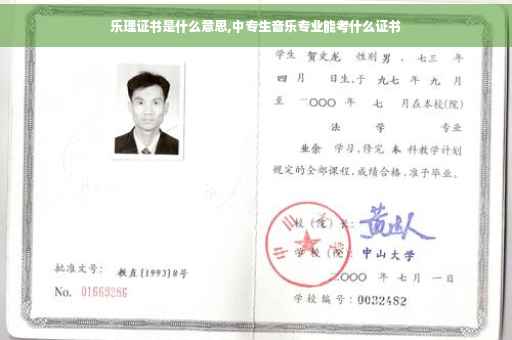 乐理证书是什么意思,中专生音乐专业能考什么证书
学生 贺文龙 性别 男 、七三 年
四 月 日生,于 九七 年 九 月
至 二〇〇〇 年 七 月在本校(院)
法 学 专业
业余 学习,修完 本 科教学计划
规定的全部课程,成绩合格,准予毕业。
校(院)长:
学校(院): 中山大学
二〇〇〇 年 七 月 一 日
批准文号: 教直[1993]8号
No. 01669286
学校编号: 0032482